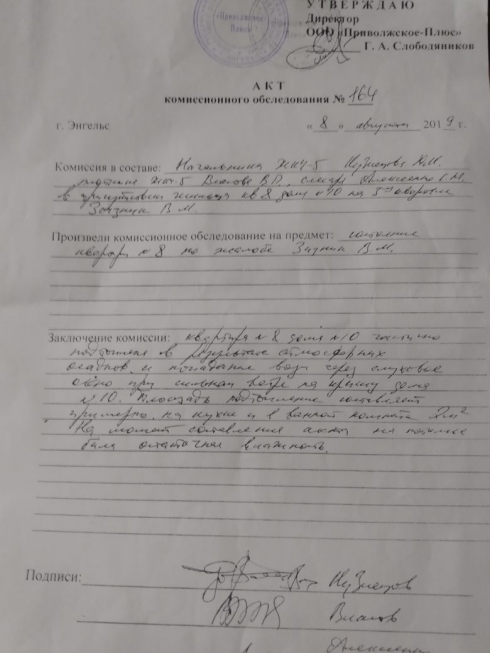 УТВЕРЖДАЮ
Директор
ООО «Приволжское-Плюс»
Г. А. Слободяников
АКТ
комиссионного обследования № 164
г. Энгельс « 8 » августа 2019 г.
Комиссия в составе: Начальника ЖКУ-5 Кузнецова
ЖКУ-5 Власова В.П. слесаря
в присутствии жильца кв 8 дома №10 на 5
В. М.
Произвели комиссионное обследование на предмет: состояние
№ 8 по жалобе В М.
Заключение комиссии: квартира № 8 дома №10 частично
в результате атмосферных
осадков и попадание воды через слуховое
окно при сильном ветре на крышу дома
№ 10. Площадь подтопления составляет
примерно на кухне и в ванной комнате 2м²
На момент составления акта на потолке
была остаточная влажность.
Подписи: Кузнецов
Власов